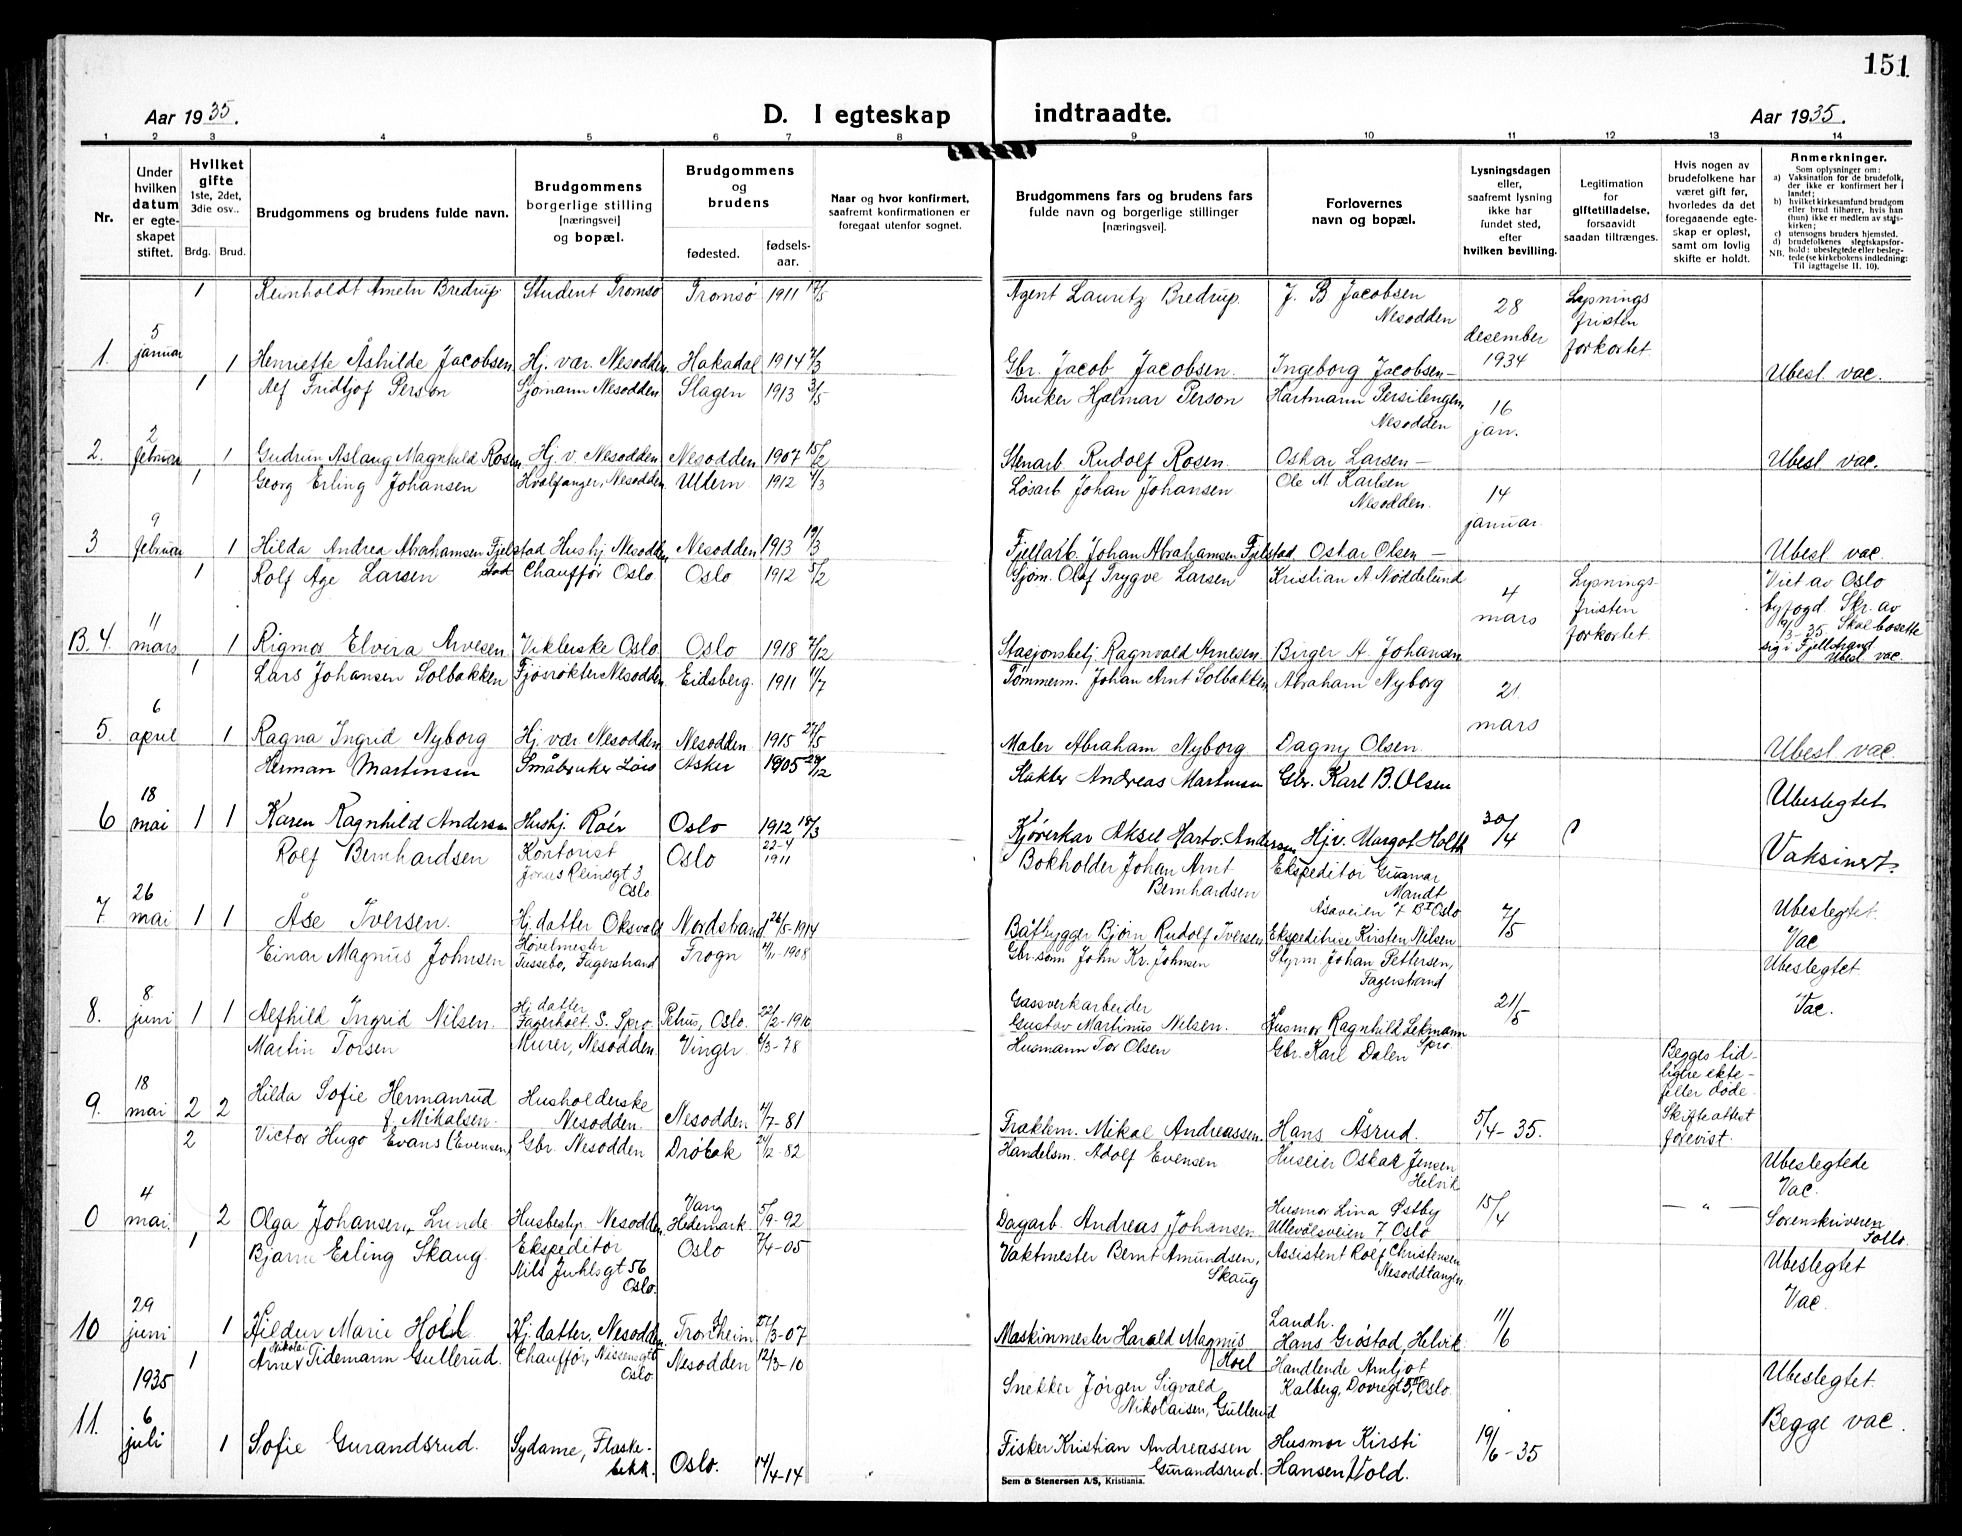 151
Aar 1935.
D. I egteskap indtraadte.
Aar 1935.
1 2 3 4 5 6 7 8 9 10 11 12 13 14
Nr.
Under hvilken datum er egteskapet stiftet.
Hvilket gifte
1ste, 2det, 3die osv..
Brdg. Brud.
Brudgommens og brudens fulde navn.
Brudgommens borgerlige stilling [næringsvei] og bopæl.
Brudgommens og brudens
fødested.
fødsels-aar.
Naar og hvor konfirmert, saafremt konfirmationen er foregaat utenfor sognet.
Brudgommens fars og brudens fars fulde navn og borgerlige stillinger [næringsvei].
Forlovernes navn og bopæl.
Lysningsdagen eller, saafremt lysning ikke har fundet sted, efter hvilken bevilling.
Legitimation for giftetilladelse, forsaavidt saadan tiltrænges.
Hvis nogen av brudefolkene har været gift før, hvorledes da det foregaaende egteskap er opløst, samt om lovlig skifte er holdt.
Anmerkninger.
Som oplysninger om:
a) Vaksination for de brudefolk, der ikke er konfirmert her i landet;
b) hvilket kirkesamfund brudgom eller brud tilhører, hvis han (hun) ikke er medlem av statskirken;
c) utensogns bruders hjemsted.
d) brudefolkenes slegtskapsforhold: ubeslegtede eller beslegtede (se kirkebokens indledning:
NB. Til iagttagelse II. 10).
1 Reinholdt Bredrup Student Tromsø Tromsø 1911 17/5 Agent Lauritz Bredrup. J. B Jacobsen Nesodden 28 desember 1934 Lysnings fristen forkortet
1. 5 januar 1 Henriette Åshilde Jacobsen Hj. vær. Nesodden Hakadal 1914 7/3 Gbr. Jacob Jacobsen. Ingeborg Jacobsen — Ubesl. vac.
1 Alf Fridtjof Person Sjømann Nesodden Slagen 1913 3/5 Bruker Hjalmar Person Hartmann Persilengen Nesodden 16 jan.
2. 2 februar 1 Gudrun Aslaug Magnhild Rosen Hj. v. Nesodden Nesodden 1907 15/2 Stenarb Rudolf Rosen. Oskar Larsen — Ubesl vac.
1 Georg Erling Johansen Hvalfanger, Nesodden Ullern 1912 4/3 Løsarb Johan Johansen Ole M. Karlsen Nesodden. 14 januar.
3 9 februar 1 Hilda Andrea Abrahamsen Fjelstad Hushj Nesodden Nesodden 1913 19/3 Fjellarb. Johan Abrahamsen Fjelstad Oskar Olsen — Ubesl vac.
1 Rolf Åge Larsen Chauffør Oslo Oslo 1912 5/2 Sjøm. Olaf Trygve Larsen Kristian A Nøddelund 4 mars Lysnings-fristen forkortet Viet av Oslo byfogd. Skr. av 9/3-35 Skal bosette sig i Fjellstrand Ubesl vac.
B.4. 11 mars 1 Rigmor Elvira Arnesen Viklerske Oslo Oslo 1918 7/12 Stasjonsbetj Ragnvald Arnesen Birger A. Johansen
1 Lars Johansen Solbakken Fjøsrøkter Nesodden Eidsberg. 1911 11/7 Tømmerm. Johan Arnt Solbakken Abraham Nyborg 21. mars
5. 6 april 1 Ragna Ingrid Nyborg Hj. vær Nesodden Nesodden 1915 27/5 Maler Abraham Nyborg Dagny Olsen Ubesl vac.
Herman Martinsen Småbruker Asker 1905 29/12 Slakter Andreas Martinsen Gbr. Karl B. Olsen Ubeslegtet
6 18 mai 1 1 Karen Ragnhild Andersen Hushj. Roer Oslo 1912 18/3 Kjørerkar Aksel Hartv. Andersen Hj.v. Margot Holth 30/4 Vaksinert.
Rolf Bernhardsen Kontorist Jonas Reinsgt 3 Oslo Oslo 22-4 1911 Bokholder Johan Arnt Bernhardsen Ekspeditør Gunnar Mandt Åsaveien 7 B I Oslo
7 26 mai 1 1 Åse Iversen. Hj. datter Oksvald Nordstrand 26/5-1914 Båtbygger Bjørn Rudolf Iversen Ekspeditrise Kirsten Nilsen 7/5 Ubeslegtet. Vac
Einar Magnus Johnsen Høvelmester Tussebo, Fagerstrand Frogn 4/11-1908 Gbr. som John Kr. Johnsen Styrm. Johan Pettersen, Fagerstrand Ubeslegtet.
8. 8. juni 1 1 Alfhild Ingrid Nilsen. Hj. datter Fagerholt. S. Spro Petrus, Oslo. 22/2-1910 Gassverkarbeider Gustav Martinus Nilsen. Husmor Ragnhild Lekmann Spro. 21/5 Vac.
Martin Torsen Murer, Nesodden. Vinger. 6/3-78 Husmann Tor Olsen Gbr. Karl Dalen Begges tid-ligere ekte-feller døde. Skifteattest forevist.
9. 18 mai 2 2 Hilda Sofie Hermanrud f. Mikalsen. Husholderske Nesodden. Nesodden 4/7-81 Træklem. Mikal Andreassen. Hans Åsrud. 5/4-35.
2 Victor Hugo Evans (Evensen) Gbr. Nesodden Drøbak 24/12-82 Handelsm. Adolf Evensen Huseier Oskar Jensen Helvik Ubeslegtede Vac.
0 4 mai. 2 Olga Johansen, Lunde Husbestyr. Nesodden. Vang Hedemark 5/9-92 Dagarb. Andreas Johansen Husmor Lina Østby Ullevålsveien 7 Oslo 15/4 — " — Sorenskriveren Follo.
1 Bjarne Erling Skaug. Ekspeditør Nils Juhlsgt 56 Oslo. Oslo 7/4-05 Vaktmester Bernt Amundsen, Skaug Assistent Rolf Christensen Nesoddtangen Ubeslegtet Vac.
10 29 juni 1 Hildur Marie Hoel Hj. datter, Nesodden. Trondheim /3-07 Maskinmester Harald Magnus Hoel Landh. Hans Grøstad, Helvik 11/6
1 Arne Nikolai Tidemann Gullerud. Chauffør, Oslo Nesodden 12/3-10 Snekker Jørgen Sigvald Nikolaisen, Gullerud Handlende Arnljot Kalberg, Dovregt 5, Oslo Ubeslegtet.
11. 1935 6 juli 1 Sofie Gurandsrud. Sydame, Flaske-bekk. Oslo. 14/4-14 Fisker Kristian Andreassen Gurandsrud. Husmor Kirsti Hansen Vold. 19/6-35 Begge vac.
Sem & Stenersen A/S, Kristiania.